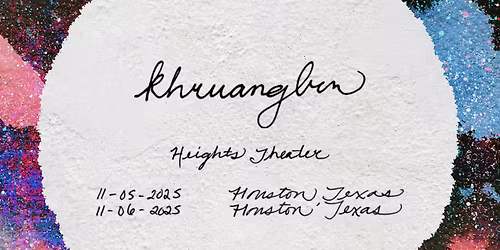 khruangbin
Heights Theater
11-05-2025 Houston, Texas
11-06-2025 Houston, Texas